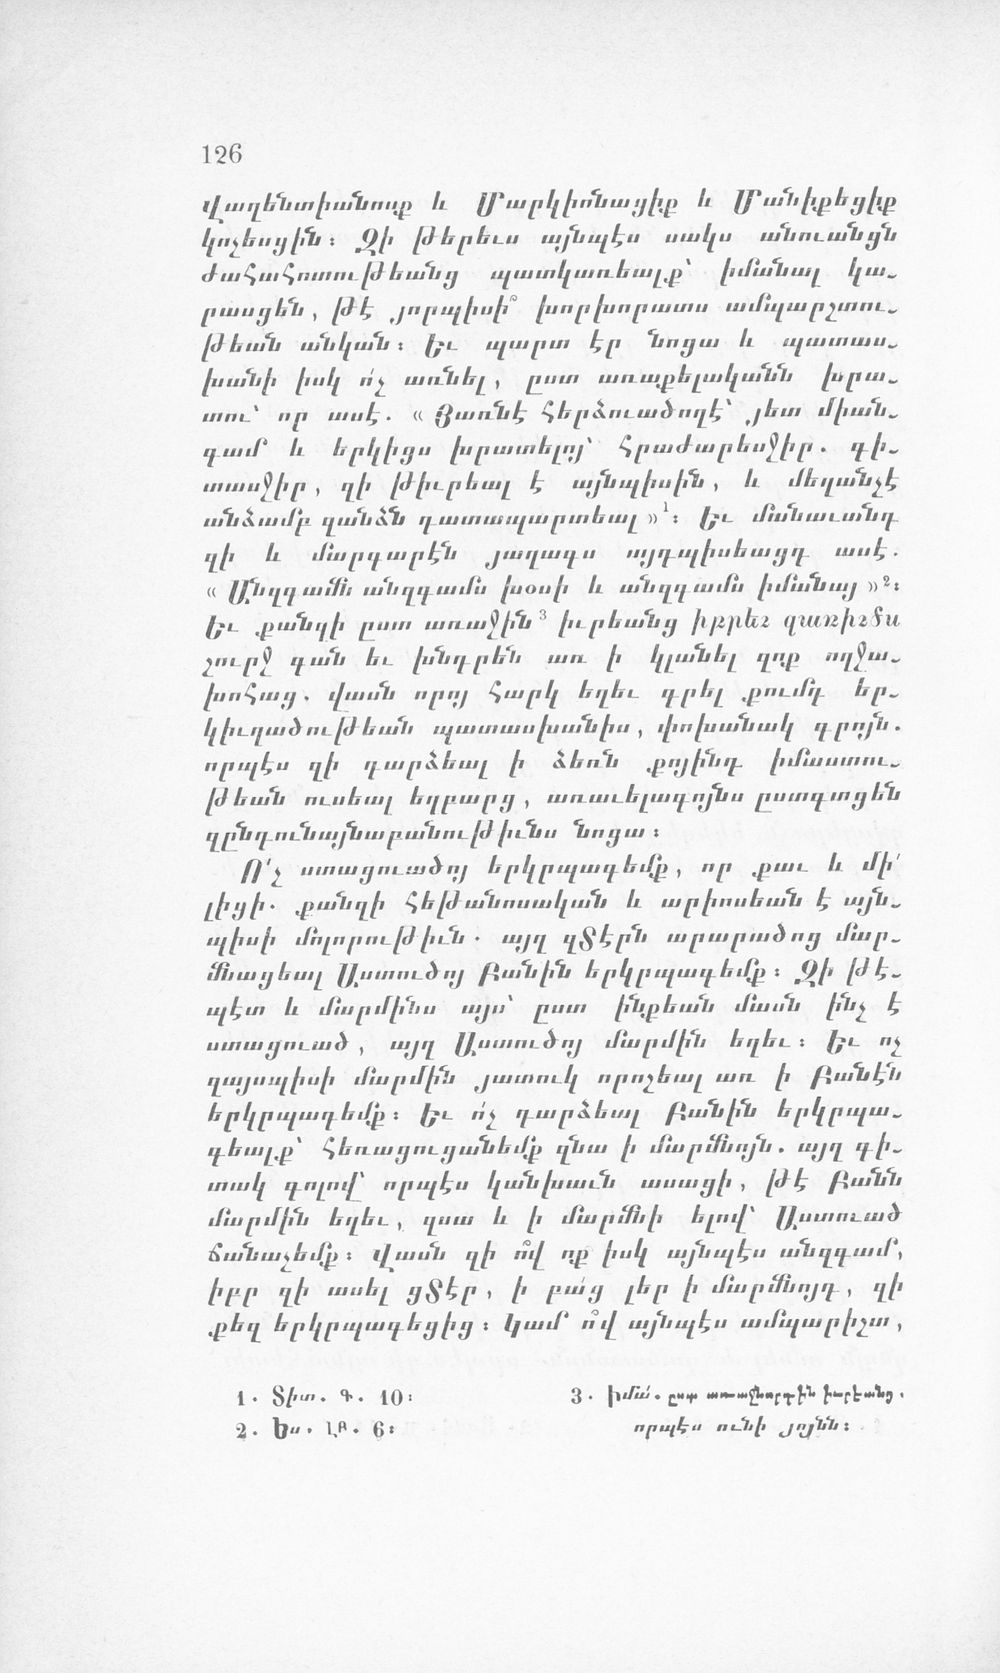 126
Վաղենտիանոսք և Մարկիոնացիք և Մանիքեցիք
կոչեսցին։ Զի թերեւս այնպէս սակս անուանցն
ժահահոտութեանց պատկառեալք՝ իմանալ կա-
րասցեն, թէ յորպիսի՞ խորխորատս ամպարշտու-
թեան անկան։ Եւ պարտ էր նոցա և պատաս-
խանի իսկ ո՛չ առնել, ըստ առաքելականն խրա-
տու՝ որ ասէ. « Յառնէ հերձուածողէ՝ յետ միան-
գամ և երկիցս խրատելոյ՝ հրաժարեսջիր. գի-
տասջիր, զի թիւրեալ է այնպիսին, և մեղանչէ
անձամբ զանձն դատապարտեալ »¹։ Եւ մանաւանդ
զի և մարգարէն յաղագս այդպիսեացդ ասէ.
« Անզգամն անզգամս խօսի և անզգամս իմանայ »²։
Եւ քանզի ըստ առաջին³ իւրեանց իբրեւ զառիւծս
շուրջ գան եւ խնդրեն առ ի կլանել զոք ողջա-
խոհաց. վասն որոյ հարկ եղեւ գրել քումդ եր-
կիւղածութեան պատասխանիս, փոխանակ գրոյն.
որպէս զի դարձեալ ի ձեռն քոյինդ իմաստու-
թեան ուսեալ եղբարց, առաւելագոյնս ըստգտցեն
զընդունայնաբանութիւնս նոցա։
Ո՛չ ստացուածոյ երկրպագեմք, որ քաւ և մի՛
լիցի. քանզի հեթանոսական և արիոսեան է այն-
պիսի մոլորութիւն. այղ զՏէրն արարածոց մար-
մնացեալ Աստուծոյ Բանին երկրպագեմք։ Զի թէ-
պէտ և մարմինս այս՝ ըստ ինքեան մասն ինչ է
ստացուած, այղ Աստուծոյ մարմին եղեւ։ Եւ ոչ
զայսպիսի մարմին յատուկ որոշեալ առ ի Բանէն
երկրպագեմք։ Եւ ո՛չ դարձեալ Բանին երկրպա-
գեալք՝ հեռացուցանեմք զնա ի մարմնոյն. այղ գի-
տակ գոլով՝ որպէս կանխաւն ասացի, թէ Բանն
մարմին եղեւ, զսա և ի մարմնի ելով՝ Աստուած
ճանաչեմք։ Վասն զի ո՞վ ոք իսկ այնպէս անզգամ,
իբր զի ասել ցՏէր, ի բա՛ց լեր ի մարմնոյդ, զի
քեզ երկրպագեցից։ Կամ ո՞վ այնպէս ամպարիշտ,
1. Տիտ. Գ. 10։
2. Ես. ԼԲ. 6։
3. Իմա՛. ըստ առաջնորդին իւրէանց,
որպէս ունի յոյնն։